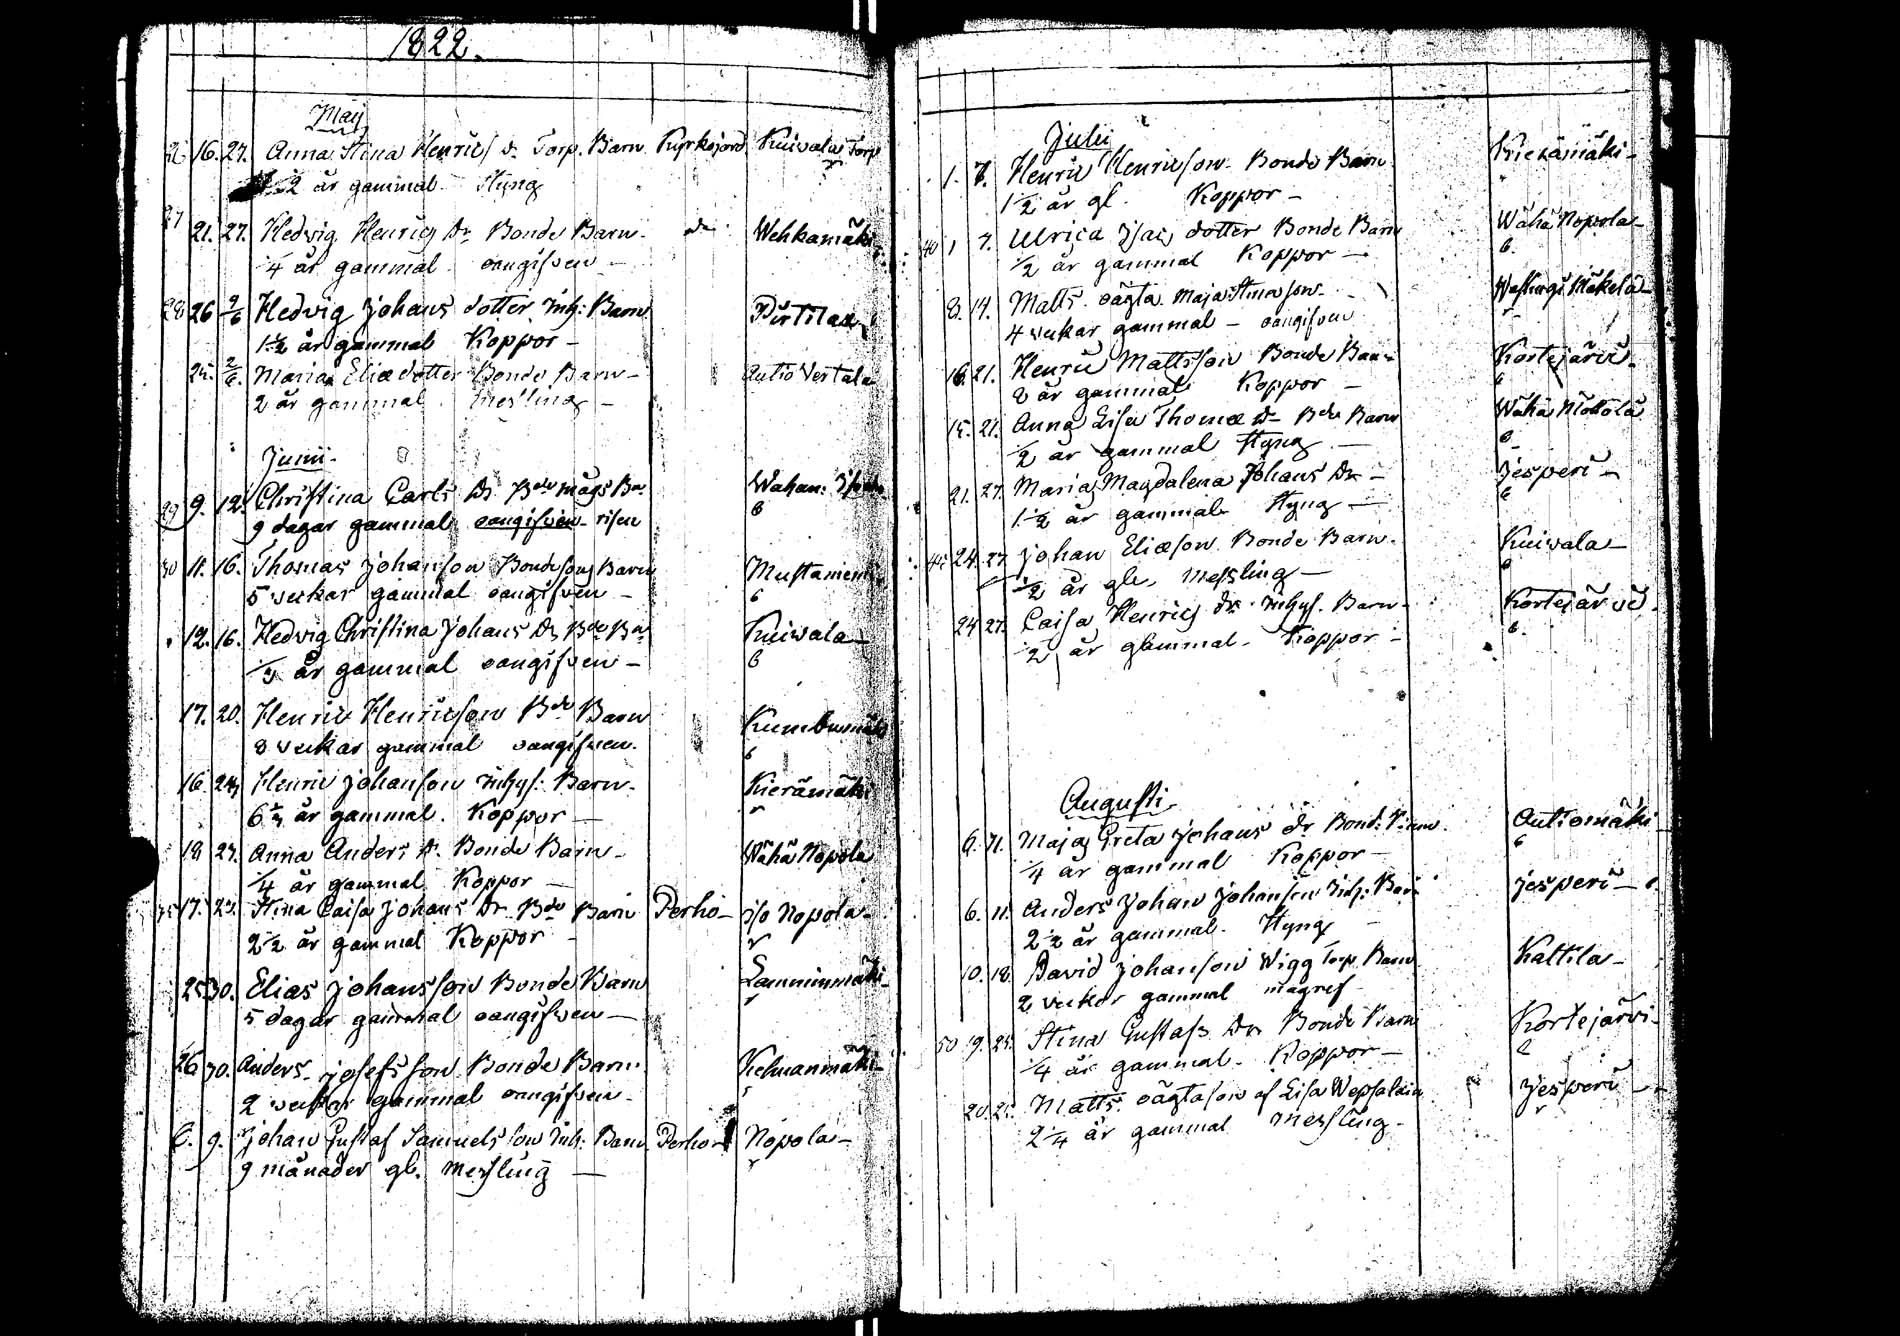 1822.
May
26 16. 27. Anna Stina Henrics d. Torp. Barn Kyrkojord Kuiwala Torp
1 1/2 år gammal Styng
27 21. 27. Hedvig Henrics Dr Bonde Barn do Wehkamäki
1/4 år gammal oangifven
28 26 2/6 Hedvig Johans dotter Inh: Barn Pirtilax
1 1/2 år gammal Koppor
25. 2/6. Maria Eliæ dotter Bonde Barn Autio Vertala
2 år gammal messling
Junii
29 9. 12. Christina Carls Dr Bde mågs Bn Wahan:
9 dagar gammal oangifven risen
30 11. 16. Thomas Johanson Bondesons Barn Mustaniemi
5 veckar gammal oangifven
12. 16. Hedvig Christina Johans Dr Bde Bn Kuiwala
1/3 år gammal oangifven
17. 20. Henric Henricson Bde Barn Kumbumäki
8 veckar gammal oangifven.
16. 24 Henric Johanson Inhys: Barn Kierämäki
6 år gammal. Koppor
18 23. Anna Anders Dr. Bonde Barn Wähä Nopola
1/4 år gammal Koppor
35 17. 23. Stina Caisa Johans Dr Bde Barn Perho iso Nopola
2 1/2 år gammal Koppor
25 30. Elias Johansson Bonde Barn Lamminmäki
5 dagar gammal oangifven
26 30. Anders Josefsson Bonde Barn Kelmanmäki
2 veckar gammal oangifven
6. 9. Johan Gustaf Samuelsson Inh: Barn Perho Nopola
9 månader gl. messling
Julii
1. 7. Henric Henricson Bonde Barn Kierämäki
1 1/2 år gl. Koppor
40 1 7. Ulrica Isacs dotter Bonde Barn Wähä Nopola
1/2 år gammal Koppor
8. 14. Matts oägta Maja Stina son Mäkelä
4 veckar gammal oangifven
16. 21. Henric Mattsson Bonde Barn Kortejärvi
2 år gammal Koppor
15. 21. Anna Lisa Thomæ Dr Bde Barn Wähä Möttölä
1/2 år gammal Styng
21. 27. Maria Magdalena Johans Dr Jesperi
1 1/2 år gammal Styng
45 24. 27. Johan Eliæson Bonde Barn. Kuiwala
1/2 år gl. Messling
24 27. Caisa Henrics Dr Inhys. Barn Kortejärvi
1/2 år gammal. Koppor
Augusti
6. 11. Maja Greta Johans Dr Bond: Barn Autiomäki
1/4 år gammal Koppor
6. 11. Anders Johan Johanson Inh: Barn Jesperi
2 1/2 år gammal. Styng
10. 18. David Johanson Wigg Torp. Barn Kattila
2 veckor gammal magref
50 19. 25. Stina Gustafs Dr Bonde Barn Kortejärvi
1/4 år gammal. Koppor
20. 25. Matts oägta son af Lisa Wepsäläin Jesperi
2 1/4 år gammal messling